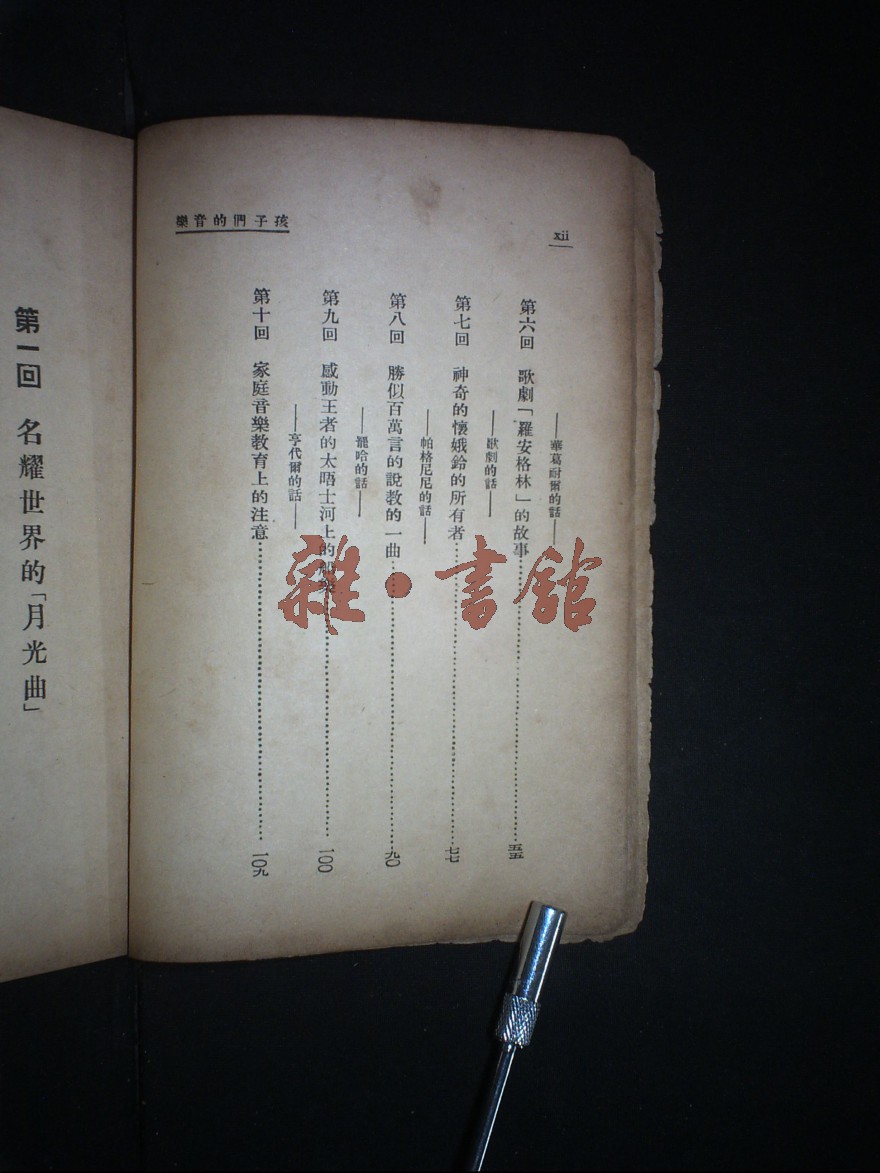 xii
孩子們的音樂
——華葛耐爾的話——
第六回 歌劇「羅安格林」的故事……五五
——歌劇的話——
第七回 神奇的懷娥鈴的所有者……七七
——帕格尼尼的話——
第八回 勝似百萬言的說教的一曲……九〇
——罷哈的話——
第九回 感動王者的太晤士河上的……一〇〇
——亨代爾的話——
第十回 家庭音樂教育上的注意……一〇九
第一回 名耀世界的「月光曲」
雜·書館